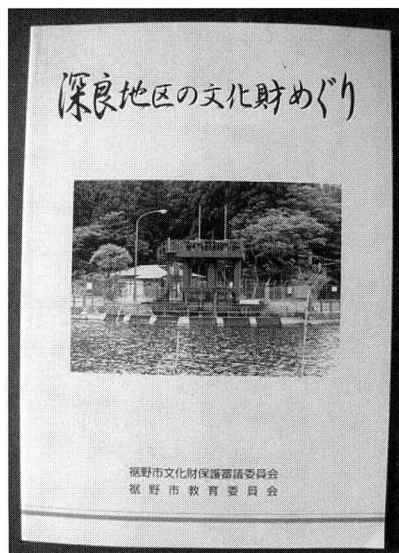 深良地区の文化財めぐり
裾野市文化財保護審議委員会
裾野市教育委員会